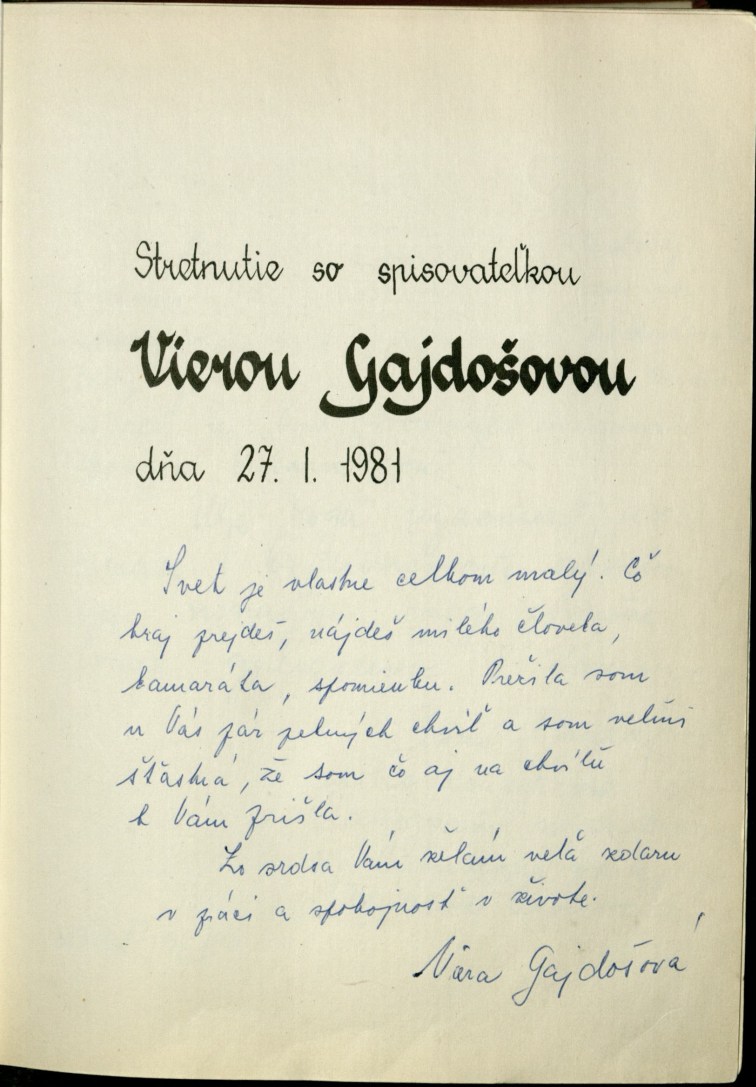 Stretnutie so spisovateľkou
Vierou Gajdošovou
dňa 27. 1. 1981
Svet je vlastne celkom malý. Čo
kraj prejdeš, nájdeš milého človeka,
kamaráta, spomienku. Prežila som
u Vás pár pekných chvíľ a som veľmi
šťastná, že som čo aj na chvíľu
k Vám prišla.
Zo srdca Vám želám veľa zdaru
v práci a spokojnosť v živote.
Viera Gajdošová